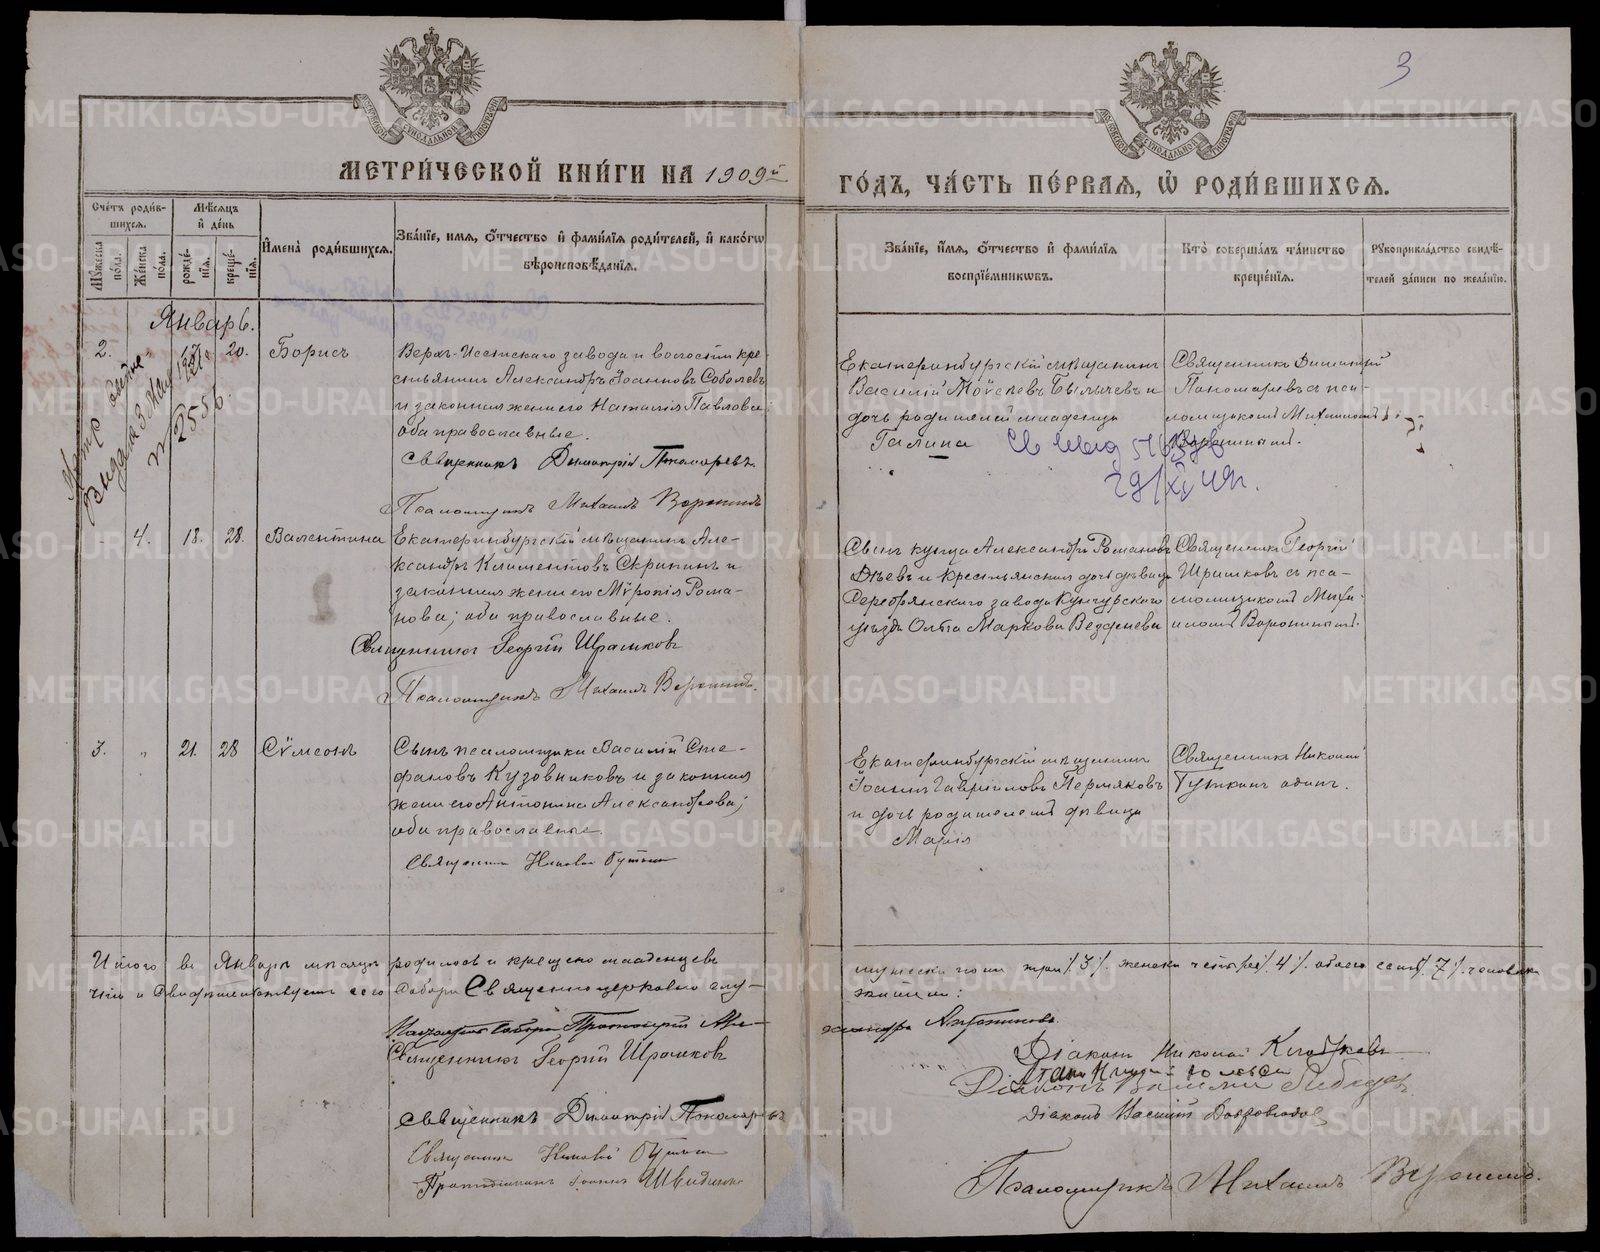 3
МЕТРИ́ЧЕСКОЙ КНИ́ГИ НА 1909й
ГО́ДЪ, ЧА́СТЬ ПЕ́РВАЯ, Ѡ҆ РОДИ́ВШИХСѦ.
Сче́тъ роди́в-
шихсѧ.
Мꙋ́жеска по́ла.
Же́нска по́ла.
Мѣ́сѧцъ
и҆ де́нь
рожде́-
нїѧ.
креще́-
нїѧ.
И҆мена̀ роди́вшихсѧ.
Зва́нїе, имѧ, ѻ҆́тчество и҆ фами́лїѧ роди́телей, и҆ како́гѡ
вѣроисповѣ́данїѧ.
Зва́нїе, и҆́мѧ, ѻ҆́тчество и҆ фами́лїѧ
воспрїе́мникѡвъ.
Кто̀ соверша́лъ та́инство
креще́нїѧ.
Рꙋкоприкла́дство свидѣ́-
телей за́писи по жела́нїю.
Январь.
2.
20.
Борисъ
Верхъ-Исетскаго завода и волости кре-
стьянинъ Александръ Іоанновъ Соболевъ
и законная жена его Наталія Павлова;
оба православные.
Священникъ Димитрій Пономаревъ.
Псаломщикъ Михаилъ Воронинъ
Екатеринбургскій мѣщанинъ
Василій Мѵсеевъ Былычевъ и
дочь родителей младенца
Галина
Священникъ Димитрій
Пономаревъ съ пса-
ломщикомъ Михаиломъ
Воронинымъ.
29/XI 49г.
Выдана 3 Мая
N 2556
4.
18.
28.
Валентина
Екатеринбургскій мѣщанинъ Але-
ксандръ Климентовъ Скрипинъ и
законная жена его Мѵропія Рома-
нова; оба православные.
Священникъ Георгій Шрамковъ
Псаломщикъ Михаилъ Воронинъ.
Сынъ купца Александръ Романовъ
и крестьянская дочь дѣвица
Серебрянскаго завода Кунгурскаго
уѣзда Ольга Маркова
Священникъ Георгій
Шрамковъ съ пса-
ломщикомъ Миха-
иломъ Воронинымъ.
3.
"
21.
28
Сѵмеонъ
Сынъ псаломщика Василій Сте-
фановъ Кузовниковъ и законная
жена его Антонина Александрова;
оба православные.
Священникъ Николай
Екатеринбургскій мѣщанинъ
Іоаннъ Гавріиловъ Пермяковъ
и дочь родителей дѣвица
Марія
Священникъ Николай
одинъ.
Итого въ Январѣ мѣсяцѣ родилось и крещено младенцевъ
мужеска пола три /3/. женска четыре /4/. обоего семь /7/. человѣкъ
Что и свидѣтельствуемъ сего Собора Священноцерковно слу-
жители:
Священникъ Георгій Шрамковъ
Священникъ Димитрій Пономаревъ
Священникъ Николай
Протодіаконъ Іоаннъ
Діаконъ Николай
Діаконъ Василій
Діаконъ
Псаломщикъ Михаилъ Воронинъ.
METRIKI.GASO-URAL.RU